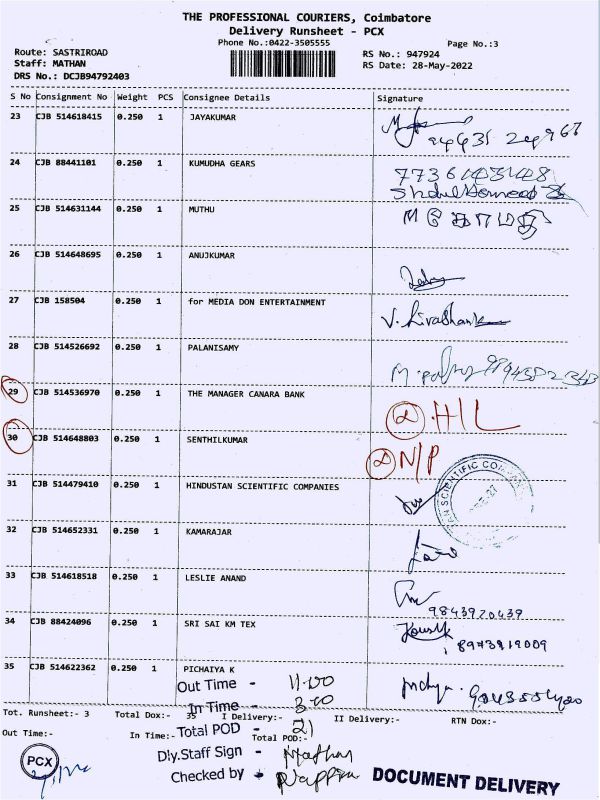 THE PROFESSIONAL COURIERS, Coimbatore
Delivery Runsheet - PCX
Phone No.:0422-3505555
Page No.:3
Route: SASTRIROAD
RS No.: 947924
Staff: MATHAN
RS Date: 28-May-2022
DRS No.: DCJB94792403
S No Consignment No Weight PCS Consignee Details Signature
23 CJB 514618415 0.250 1 JAYAKUMAR
24 CJB 88441101 0.250 1 KUMUDHA GEARS
25 CJB 514631144 0.250 1 MUTHU
26 CJB 514648695 0.250 1 ANUJKUMAR
27 CJB 158504 0.250 1 for MEDIA DON ENTERTAINMENT
28 CJB 514526692 0.250 1 PALANISAMY
29 CJB 514536970 0.250 1 THE MANAGER CANARA BANK H/L
30 CJB 514648803 0.250 1 SENTHILKUMAR N/P
31 CJB 514479410 0.250 1 HINDUSTAN SCIENTIFIC COMPANIES
32 CJB 514652331 0.250 1 KAMARAJAR
33 CJB 514618518 0.250 1 LESLIE ANAND
9843920439
34 CJB 88424096 0.250 1 SRI SAI KM TEX
8973919009
35 CJB 514622362 0.250 1 PICHAIYA K
Out Time - 11.00
In Time - 3.00
Tot. Runsheet:- 3 Total Dox:- 35 I Delivery:- II Delivery:- RTN Dox:-
Total POD - 21
Out Time:- In Time:- Total POD:-
Dly.Staff Sign - Mathan
PCX
Checked by -
DOCUMENT DELIVERY